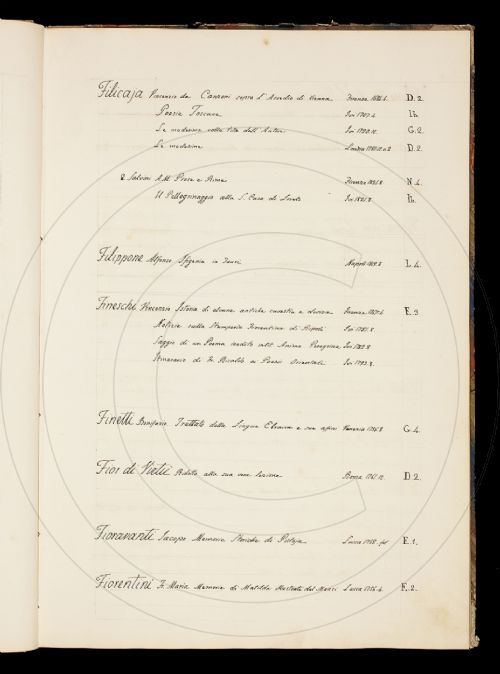 Filicaja Vincenzio da Canzoni sopra l'Assedio di Vienna Firenze 1684.4. D. 2.
Poesie Toscane Ivi 1707.4. Ib.
Le medesime colla vita dell'Autore Ivi G. 2.
Le medesime Londra D. 2.
e Salvini A.M. Prose e Rime Firenze 1821.8 N. 4.
Il Pellegrinaggio alla S. Casa di Loreto Ivi 1821.8. Ib.
Filippone Alfonso Ifigenia in Tauri Napoli L. 4.
Fineschi Vincenzio Istoria di alcune antiche carestie e dovizie Firenze E. 3
Notizie sulla Stamperia Fiorentina di Ripoli Ivi 1781.8.
Saggio di un Poema inedito intit. Anima Peregrina Ivi
Itinerario di Fr. Ricoldo ai Paesi Orientali Ivi 1793.8.
Finetti Bonifacio Trattato della Lingua Ebraica e sue affini Venezia 1756.8 G. 4.
Fior di Virtù Ridotto alla sua vera lezione Roma D. 2.
Fioravanti Jacopo Memorie Storiche di Pistoja Lucca 1758. fol E. 1.
Fiorentini Fr. Maria Memorie di Matilda Lucca 1756.4. E. 2.